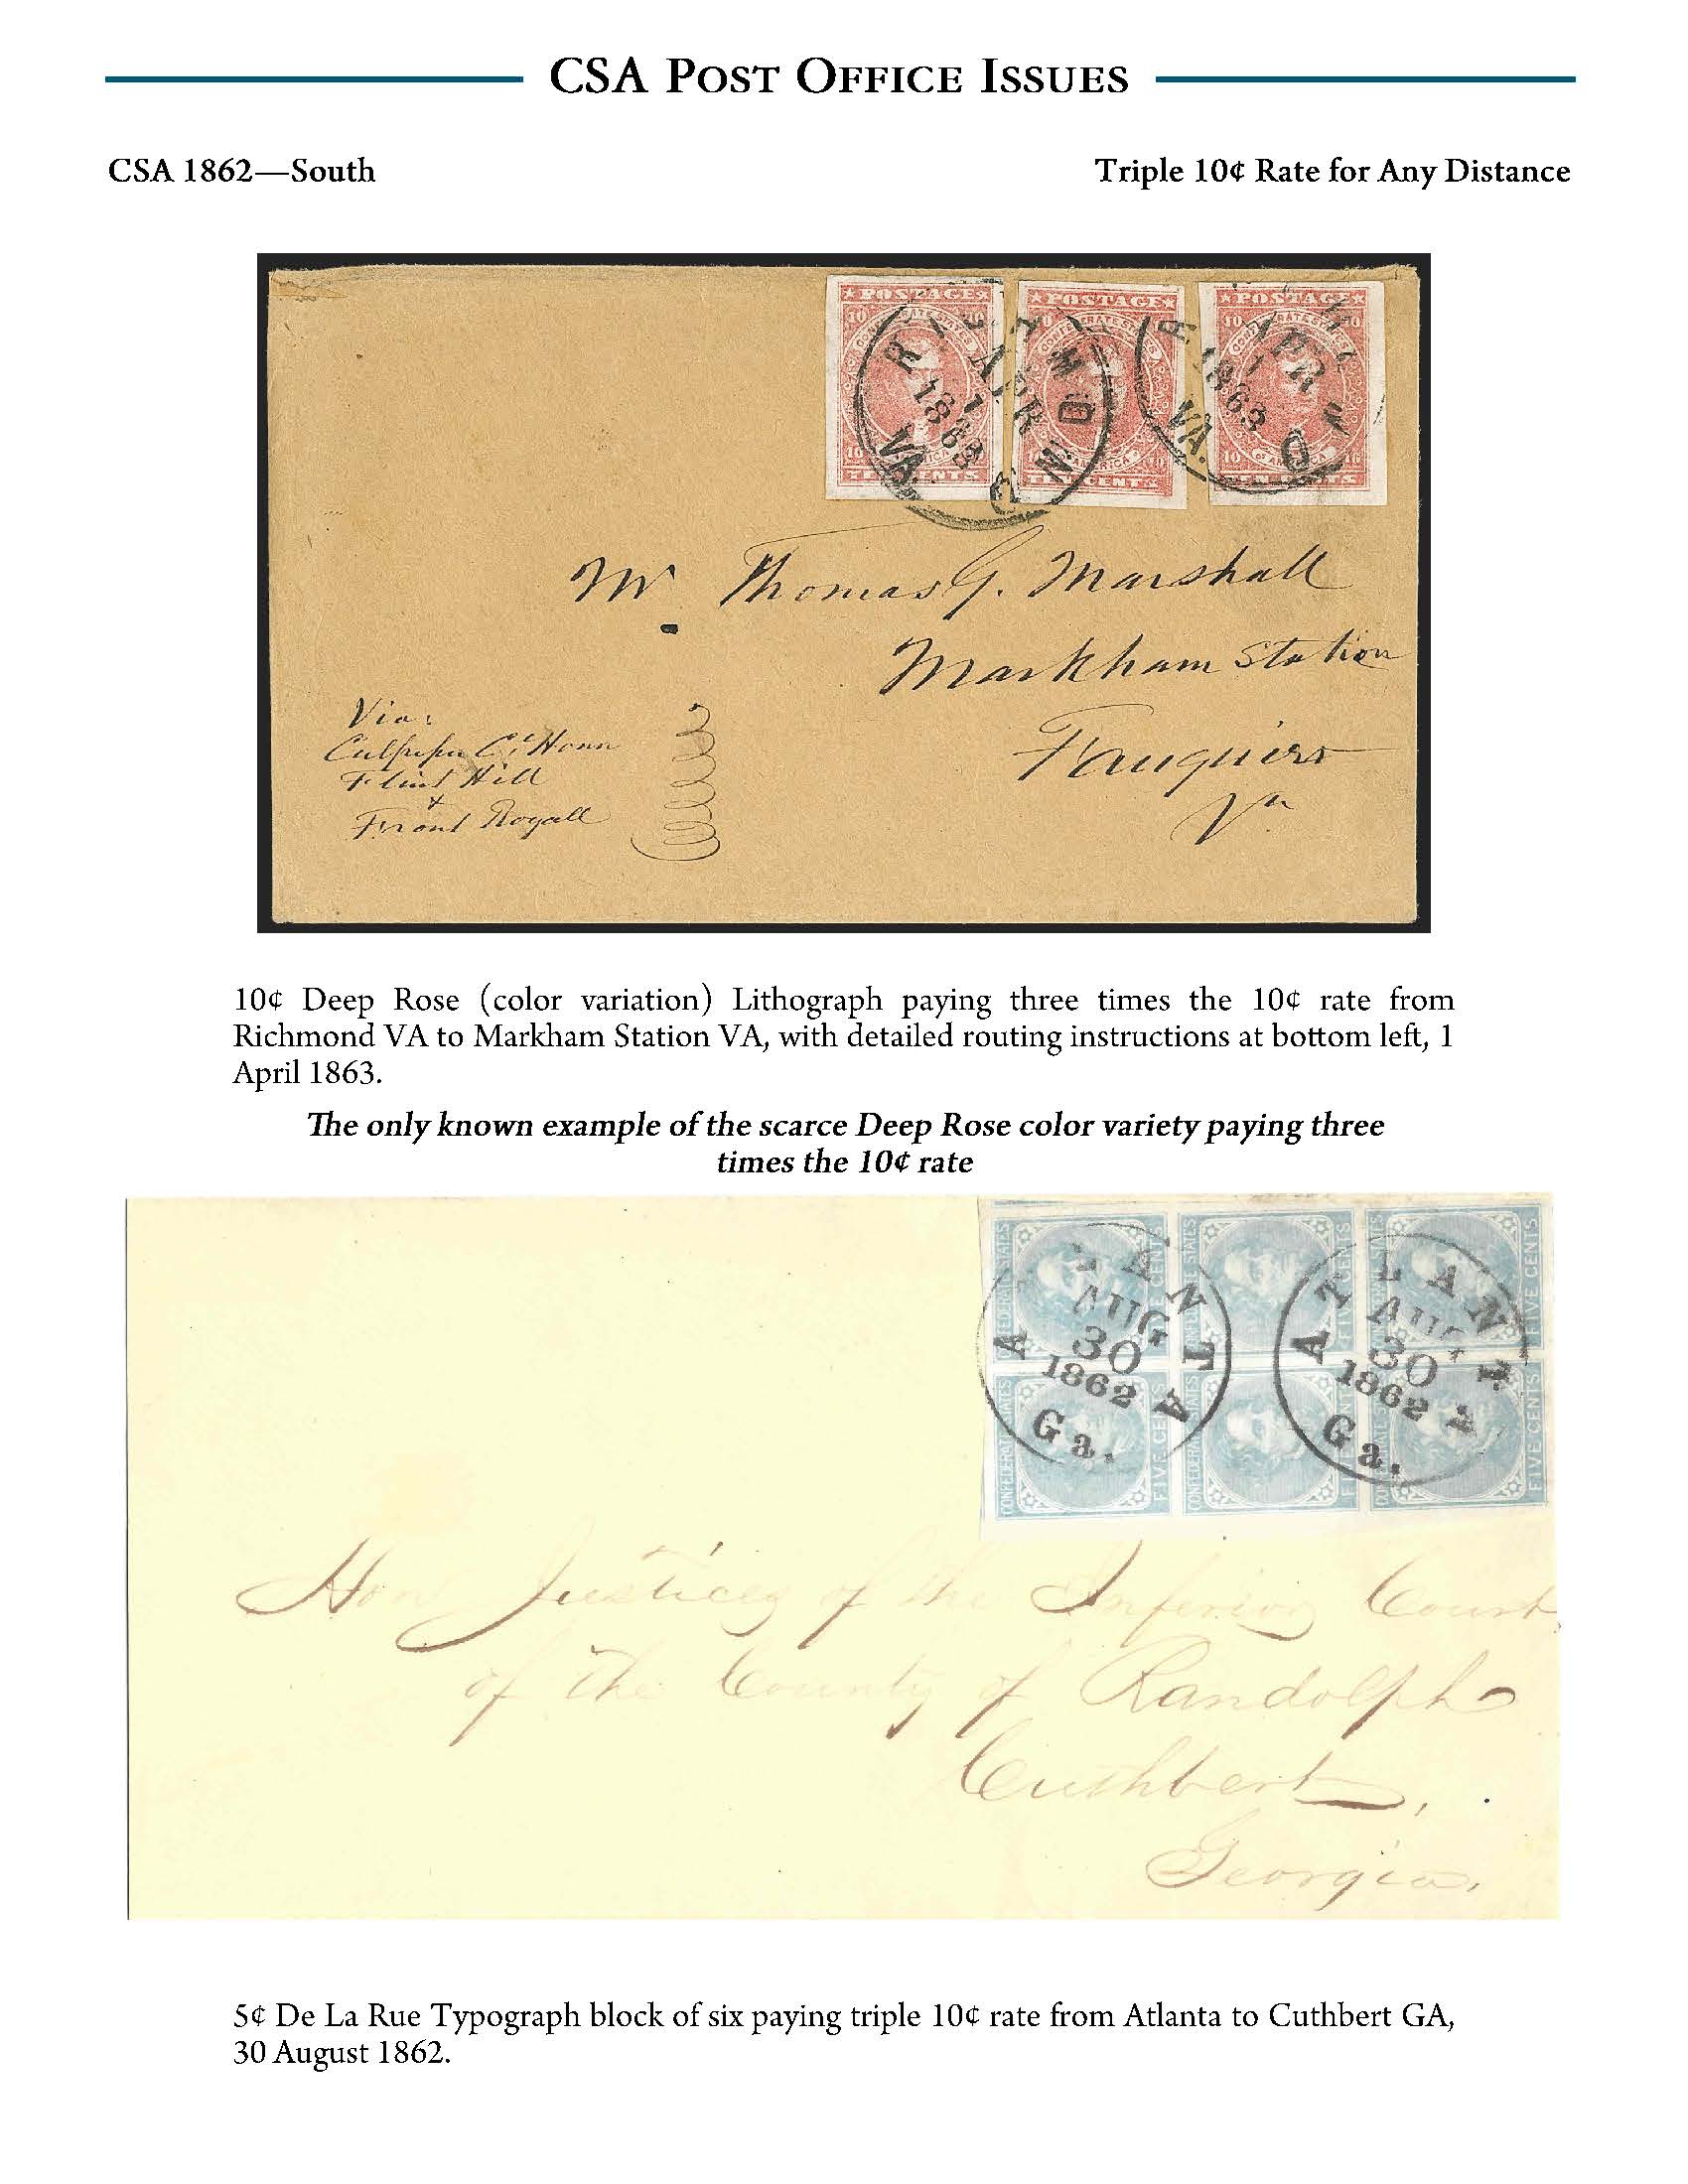 CSA Post Office Issues
CSA 1862—South
Triple 10¢ Rate for Any Distance
★POSTAGE★ ★POSTAGE★ ★POSTAGE★
RICHMOND APR 1 1863 VA.
RICHMOND APR 1 1863 VA.
TEN CENTS TEN CENTS TEN CENTS
Mr Thomas G. Marshall
Markham Station
Fauquier
Va
Via:
Culpeper Ct House
Flint Hill
+
Front Royall
10¢ Deep Rose (color variation) Lithograph paying three times the 10¢ rate from
Richmond VA to Markham Station VA, with detailed routing instructions at bottom left, 1
April 1863.
The only known example of the scarce Deep Rose color variety paying three
times the 10¢ rate
CONFEDERATE STATES FIVE CENTS
ATLANTA Ga. AUG 30 1862
ATLANTA Ga. AUG 30 1862
Hon Justices of the Inferior Court
of the County of Randolph
Cuthbert,
Georgia,
5¢ De La Rue Typograph block of six paying triple 10¢ rate from Atlanta to Cuthbert GA,
30 August 1862.